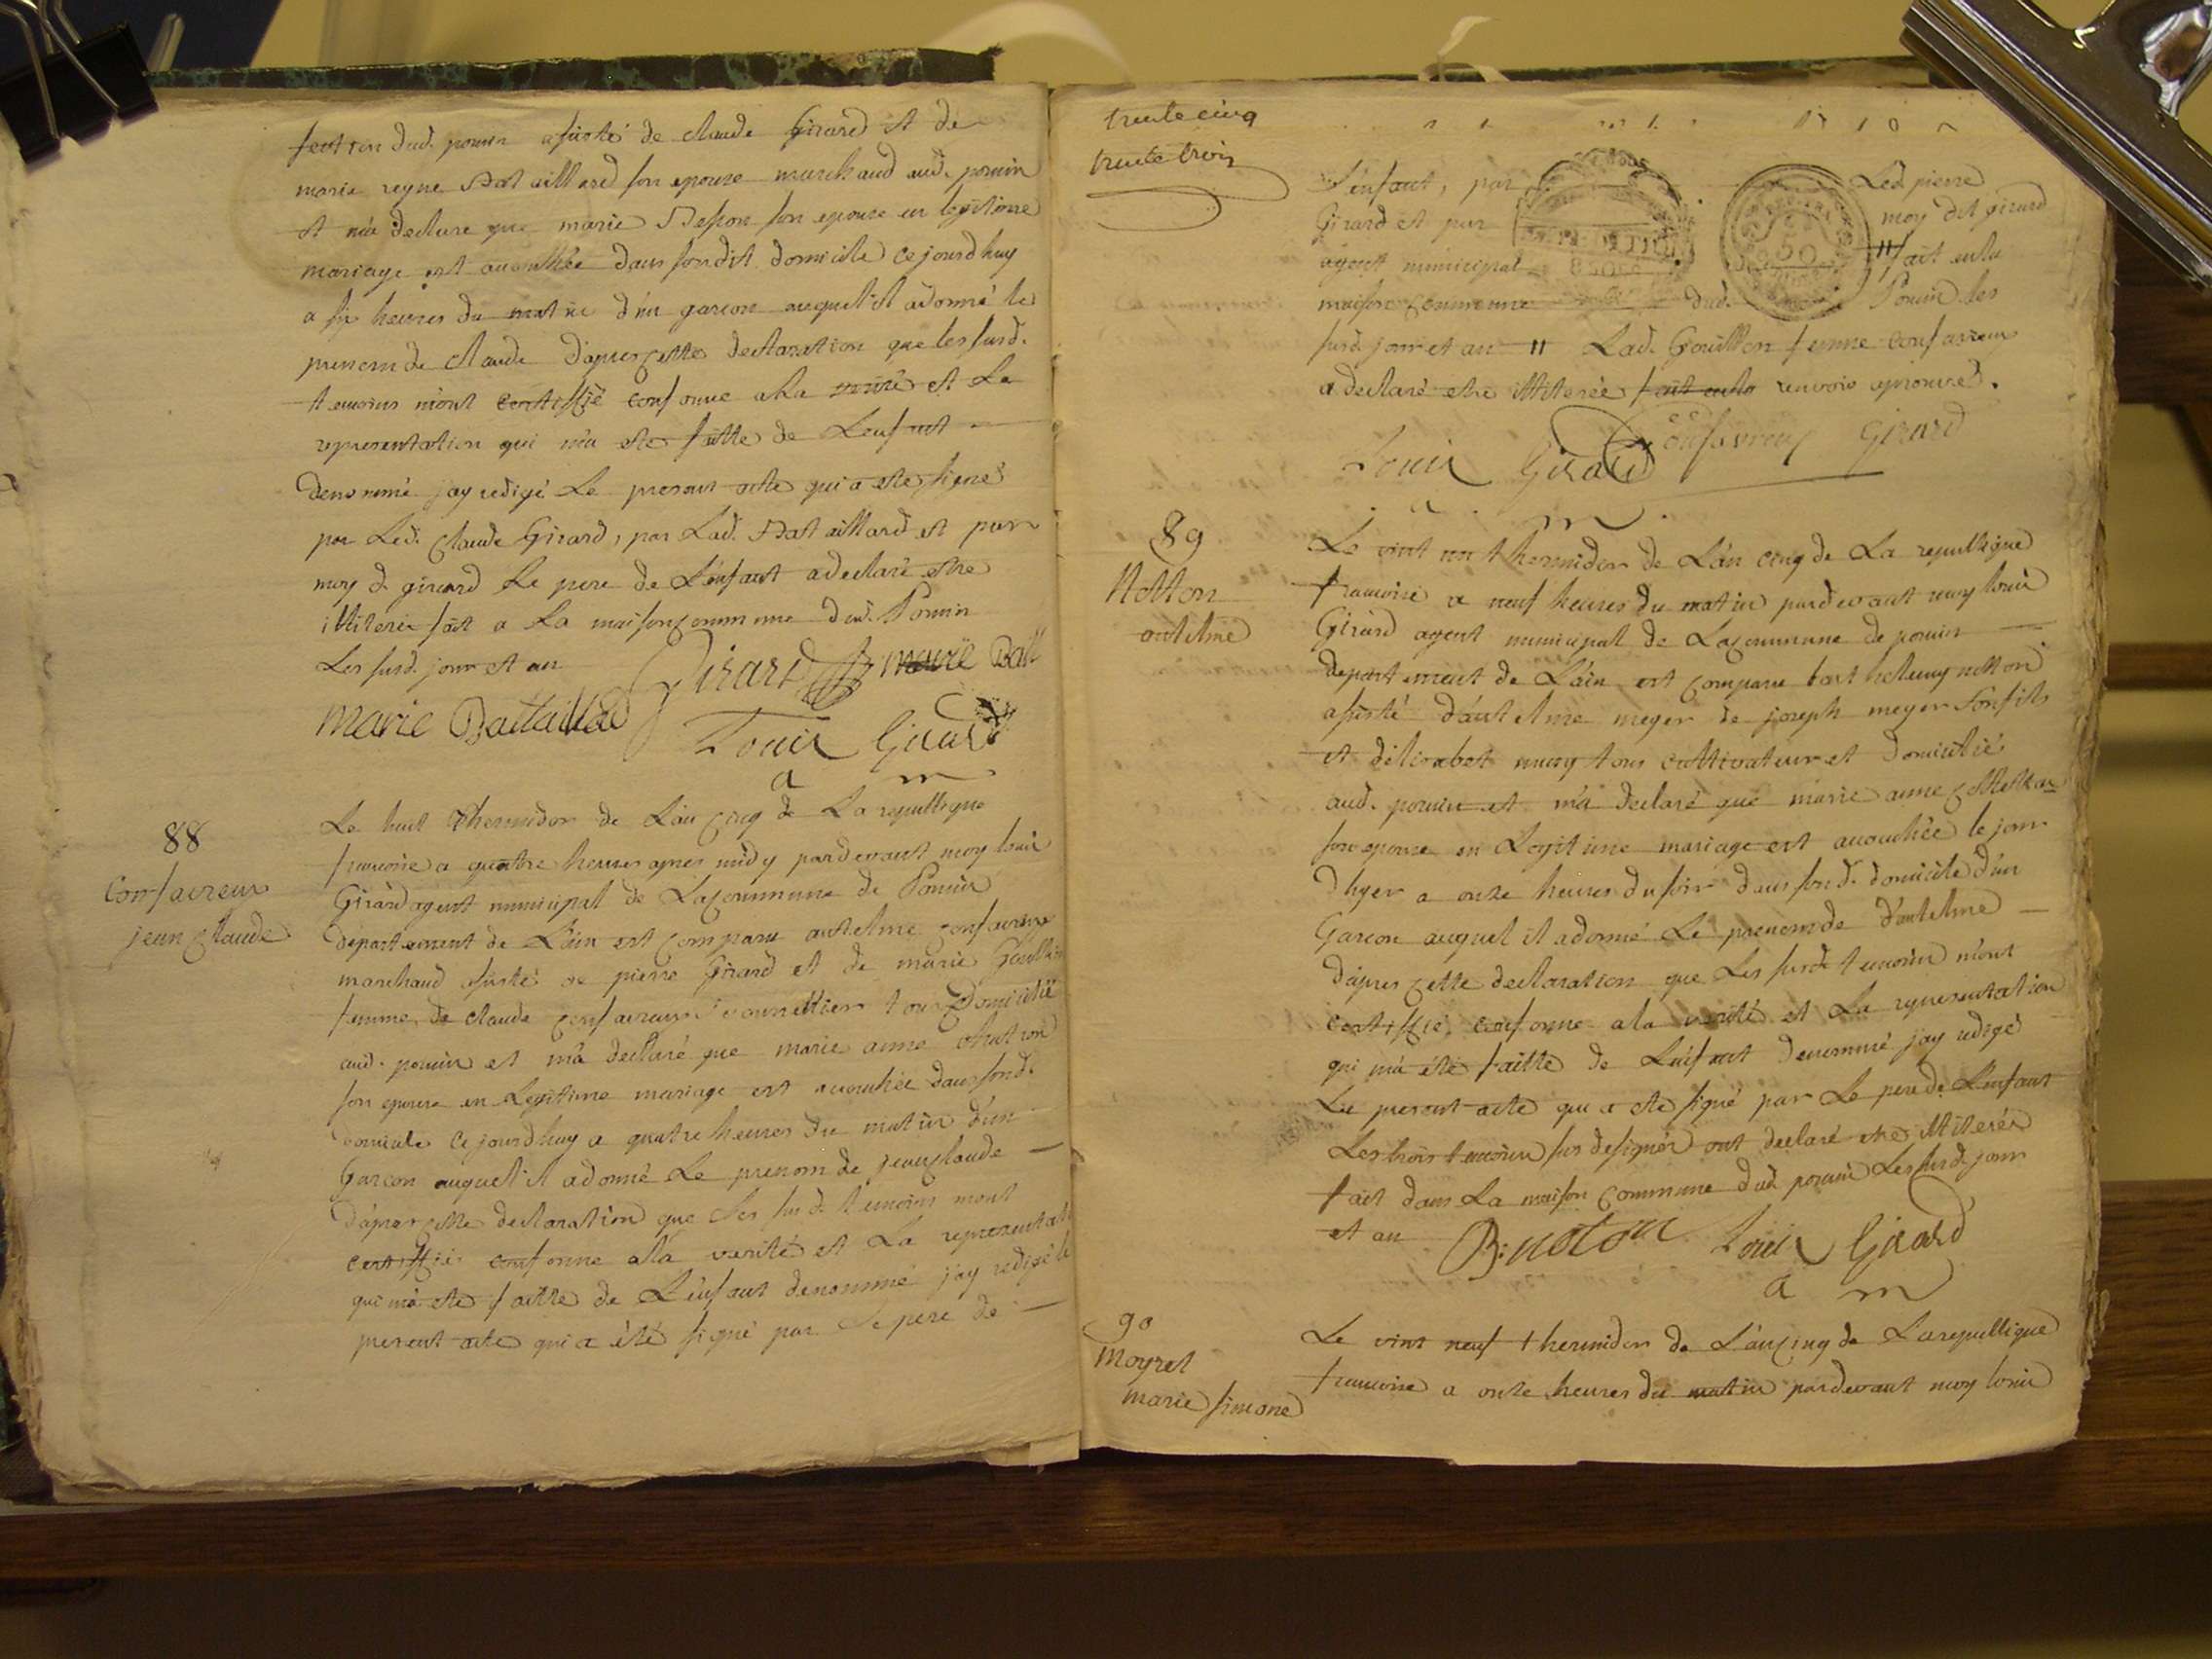 section dud. pouin assisté de claude Girard et de
marie regne Bataillard son epouse marchaud aud. pouin
et m'a declare que marie son epouse en legitime
mariage est accouchée dans son dit domicile ce jourd huy
a six heures du matin d'un garcon auquel il adonné le
prenom de claude d'apres cette declaration que les susd.
temoins m'ont certiffié conforme a la verité et La
representation qui m'a ete faitte de L'enfant
denommé jay redigé Le present acte qui a ete signé
par Led. Claude Girard, par Lad. Bataillard et par
moy d. girard le pere de L'enfant a declaré estre
illiteré fait a La maison commune dud. Pouin
Les susd. jour et an Girard marie Batt
marie Bataillad
Louis Girard
a m
88
Confavreux
jean Claude
Le huit thermidor de L'an Cinq de La republique
francoise a quatre heures apres midy pardevant moy louis
Girard agent municipal de La Commune de Pouin
departement de L'ain est comparu antelme confavreux
marchaud assisté de pierre Girard et de marie Gouillon
femme de claude confavreux tous Domicilié
aud. pouin et m'a declaré que marie anne
son epouse en Legitime mariage est accouchée dans sond.
domicile ce jourdhuy a quatre heures du matin d'un
Garcon auquel il adonné Le prenom de jean claude
d'apres cette declaration que Les susd. temoins mont
certiffié conforme ala verité et La representati
qui m'a ete faitte de L'enfant denommé jay redigé le
present acte qui a été signé par Le pere de
trente cinq
trente trois
L'enfant, par Led pierre
Girard et par moy dit girard
agent municipal " fait enla
maison commune dud. Pouin les
susd. jour et an " Lad. Gouillon femme confavreux
a declaré estre illiterée fait enla renvoie aprouvé.
Louis Girard Confavreux Girard
a m
89
Notton
antelme
Le vint thermidor de L'an cinq de La republique
francoise a neuf heures du matin pardevant moy louis
Girard agent municipal de La commune de pouin
departement de L'ain est comparu bart helemy notton
assisté d'antelme meyer de joseph meyer son fils
et d'elisabet tous cultivateur et domicilié
aud. pouin et m'a declaré que marie anne
son epouse en Legitime mariage est accouchée le jour
d'hyer a onze heures du soir dans son d. domicile d'un
Garcon auquel il adonné Le prenom de d'antelme
d'apres cette declaration que Les susd. temoins m'ont
certiffié conforme ala verité et La representation
qui m'a été faitte de L'enfant denommé jay redigé
Le present acte qui a ete signé par Le pere de L'enfant
Les trois temoins sus designés ont declaré etre illiterés
fait dans La maison Commune dud pouin Les susd. jour
et an B: noton Louis Girard
a m
90
Moyret
marie simone
Le vint neuf thermidor de L'an cinq de La republique
francoise a onze heures du matin pardevant moy louis